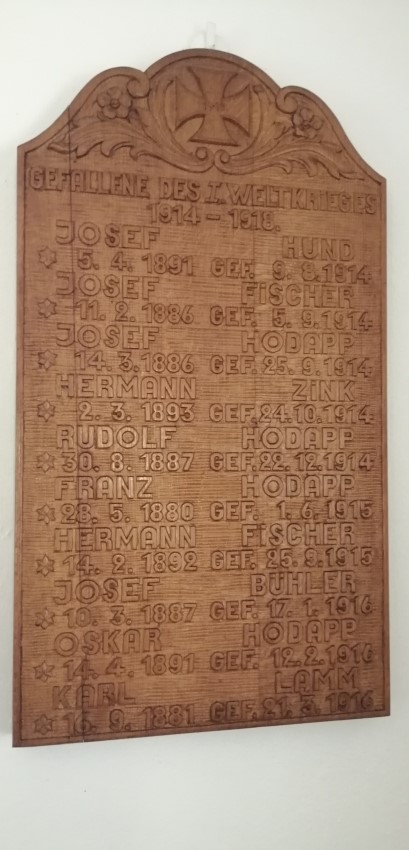 GEFALLENE DES I. WELTKRIEGES
1914 – 1918.
JOSEF HUND
5. 4. 1891 GEF. 9. 8. 1914
JOSEF FiSCHER
11. 2. 1886 GEF. 5. 9. 1914
JOSEF HODAPP
14. 3. 1886 GEF. 25. 9. 1914
HERMANN ZiNK
2. 3. 1893 GEF. 24. 10. 1914
RUDOLF HODAPP
30. 8. 1887 GEF. 22. 12. 1914
FRANZ HODAPP
28. 5. 1880 GEF. 1. 6. 1915
HERMANN FiSCHER
14. 2. 1892 GEF. 25. 9. 1915
JOSEF BÜHLER
10. 3. 1887 GEF. 17. 1. 1916
OSKAR HODAPP
14. 4. 1891 GEF. 12. 2. 1916
KARL LAMM
16. 9. 1881 GEF. 21. 3. 1916